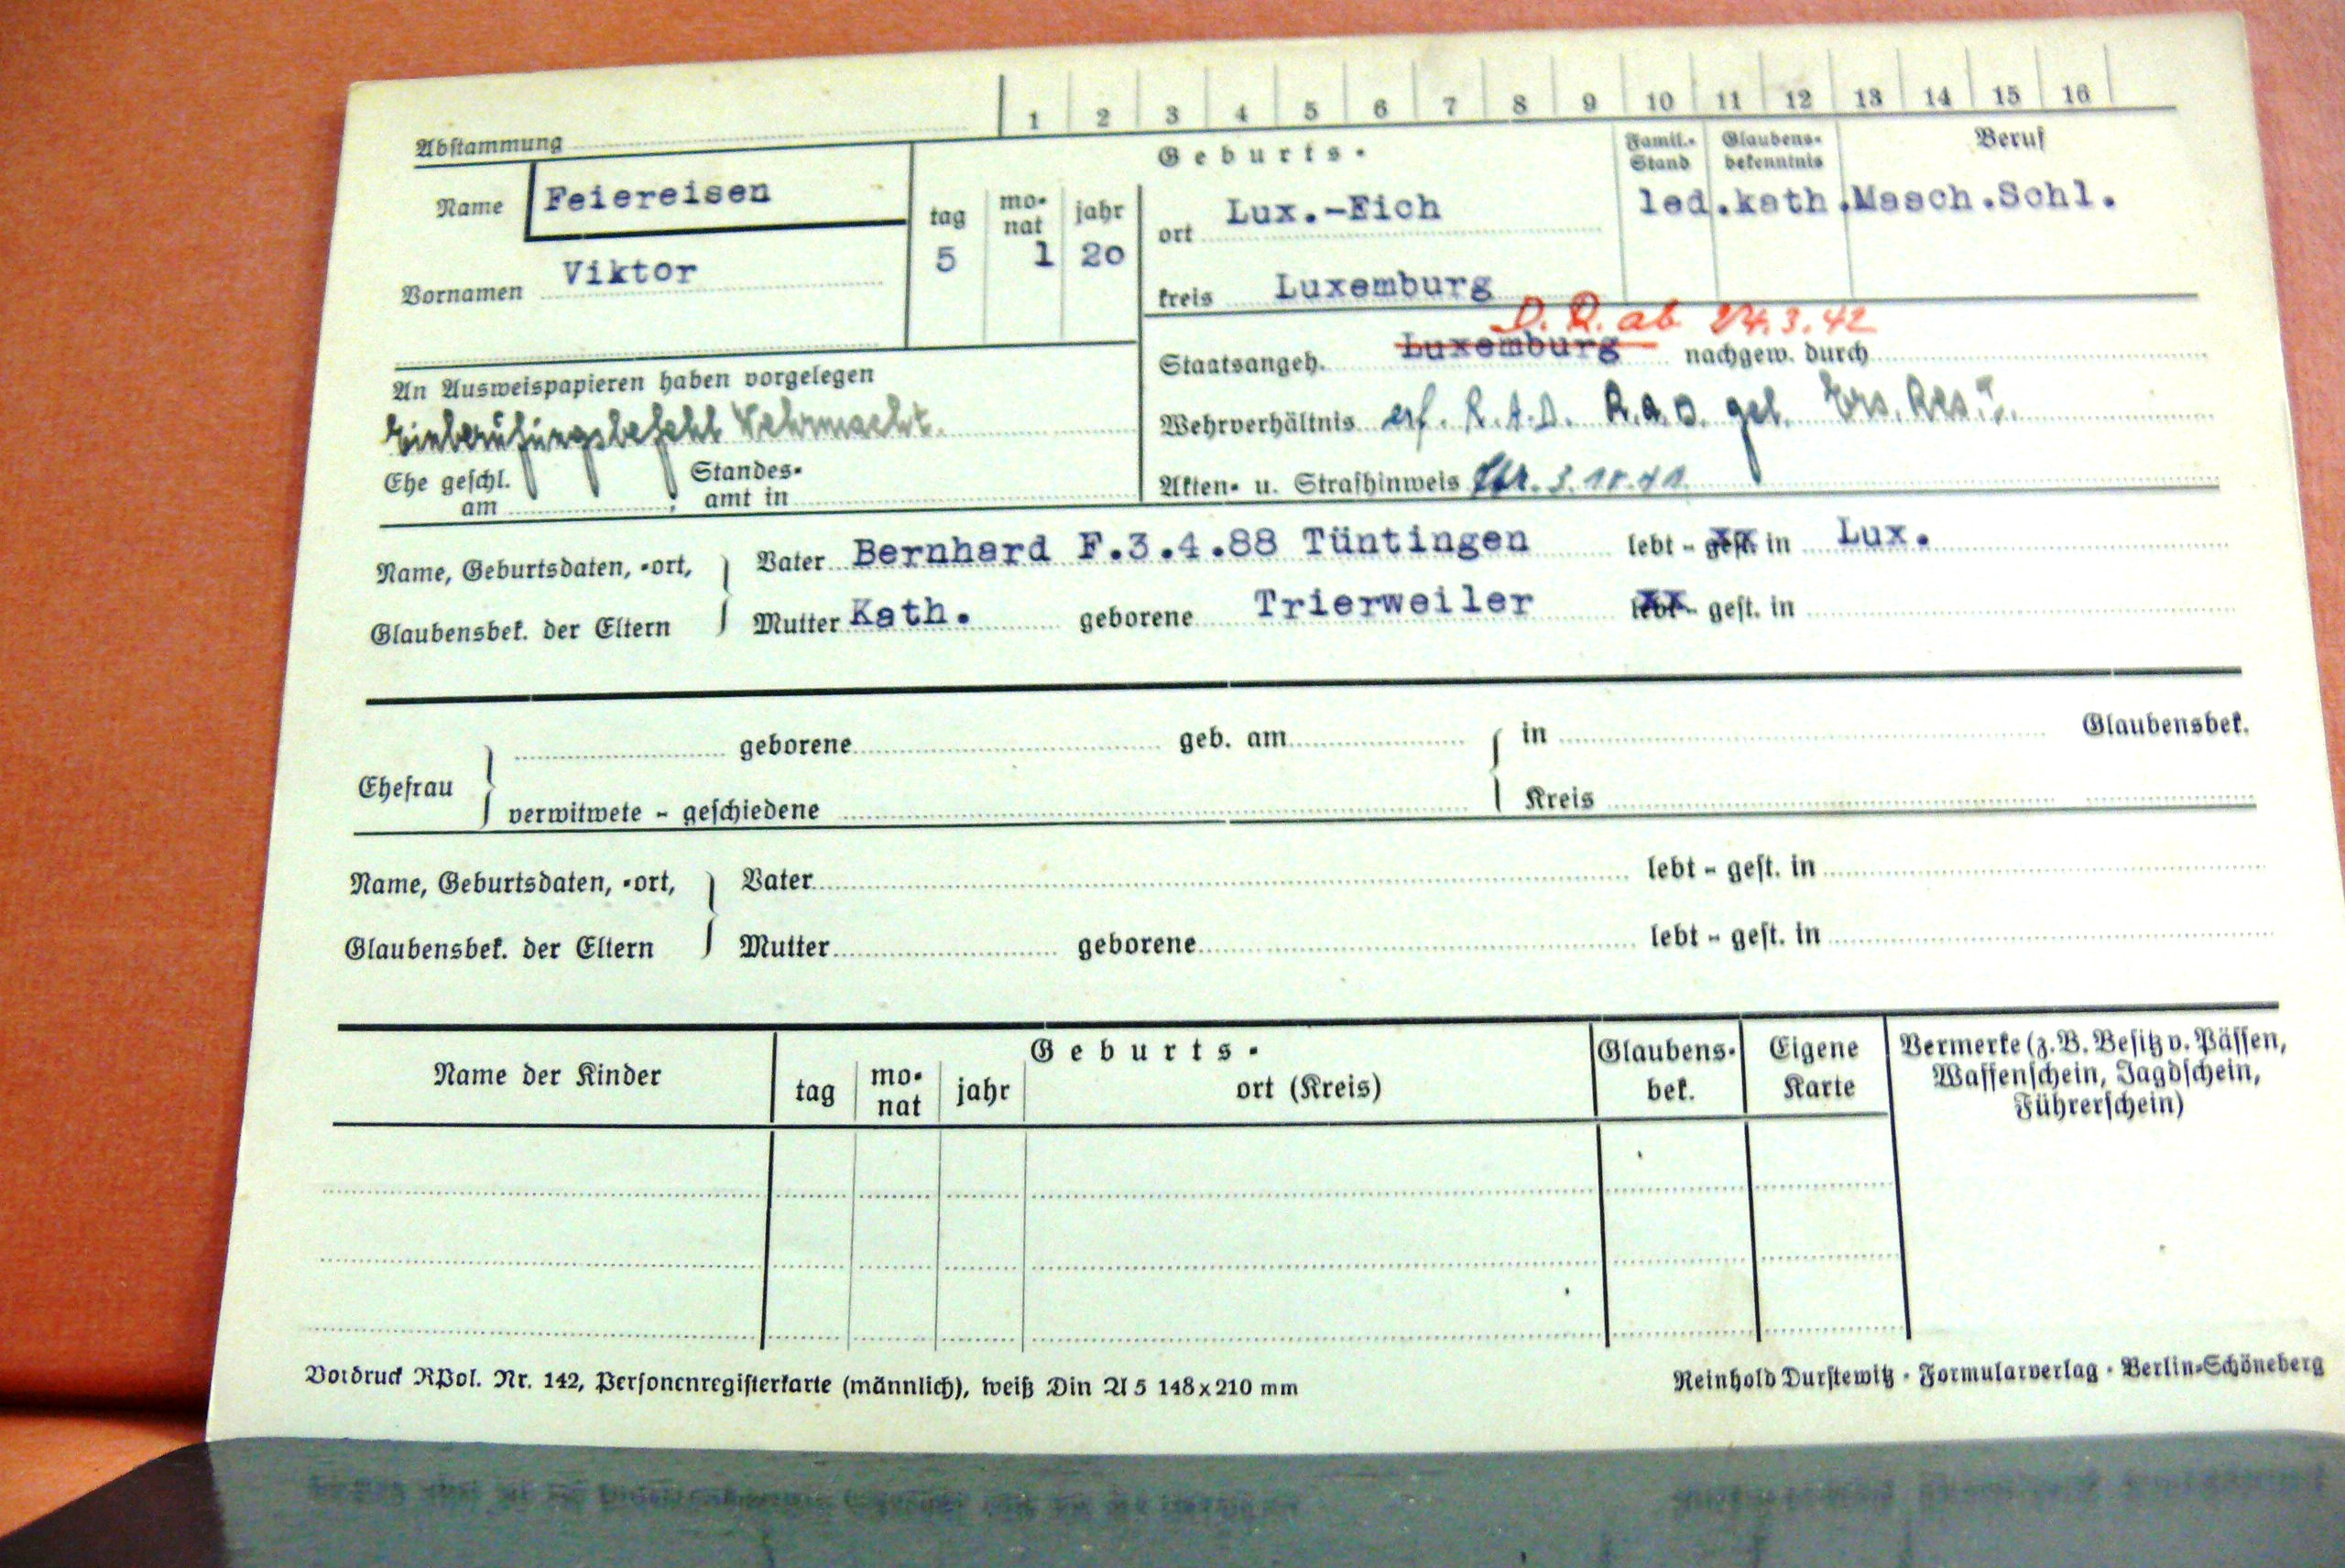 1 2 3 4 5 6 7 8 9 10 11 12 13 14 15 16
Abstammung
Geburts- Famil.- Stand Glaubens- bekenntnis Beruf
Name Feiereisen
tag monat jahr ort Lux.-Eich led. kath. Masch.Schl.
Vornamen Viktor 5 1 20
kreis Luxemburg
D. R. ab 24.3.42
Staatsangeh. Luxemburg nachgew. durch
An Ausweispapieren haben vorgelegen
Einberufungsbefehl Wehrmacht.
Wehrverhältnis erf. R.A.D. R.a.D. gel. Ers. Res. I.
Ehe geschl. am , Standesamt in
Akten- u. Strafhinweis 3.10.41.
Name, Geburtsdaten, -ort, Vater Bernhard F.3.4.88 Tüntingen lebt - gest. in Lux.
Glaubensbek. der Eltern Mutter Kath. geborene Trierweiler lebt - gest. in
geborene geb. am in Glaubensbek.
Ehefrau
verwitwete - geschiedene Kreis
Name, Geburtsdaten, -ort, Vater lebt - gest. in
Glaubensbek. der Eltern Mutter geborene lebt - gest. in
Name der Kinder Geburts- Glaubens- bek. Eigene Karte Vermerke (z. B. Besitz v. Pässen,
tag monat jahr ort (Kreis) Waffenschein, Jagdschein,
Führerschein)
Vordruck RPol. Nr. 142, Personenregisterkarte (männlich), weiß Din A 5 148x210 mm Reinhold Durstewitz · Formularverlag · Berlin-Schöneberg